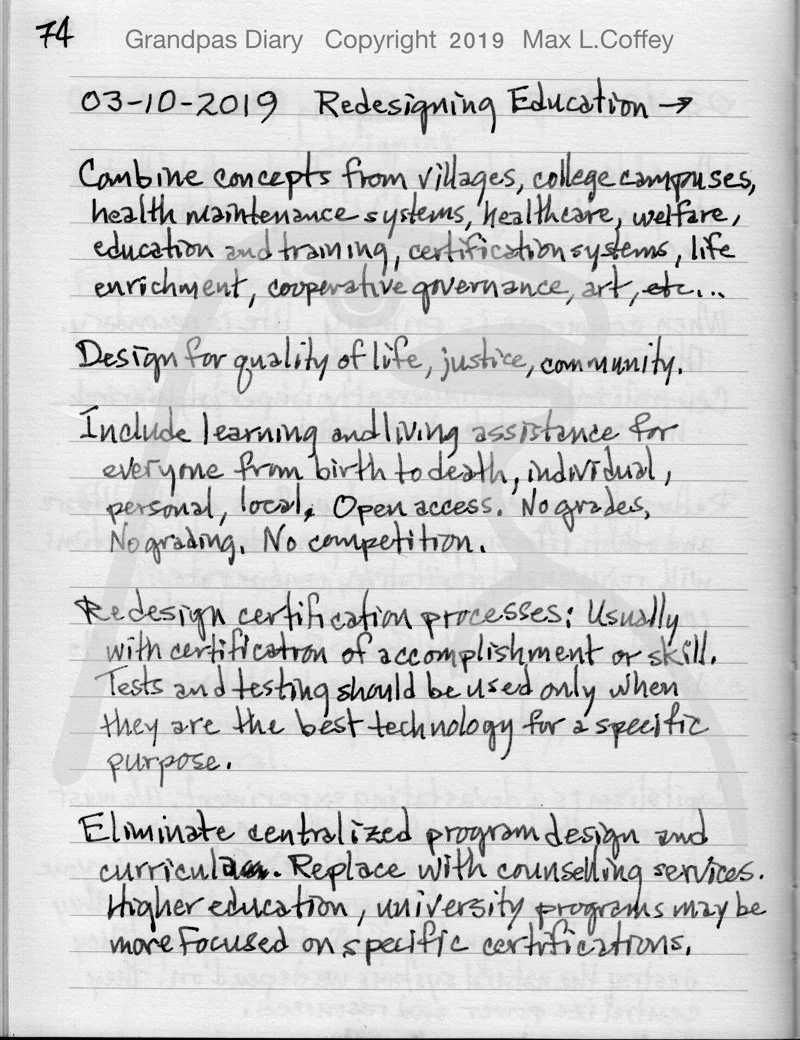 74
Grandpas Diary Copyright 2019 Max L.Coffey
03-10-2019 Redesigning Education →
Combine concepts from villages, college campuses,
health maintenance systems, healthcare, welfare,
education and training, certification systems, life
enrichment, cooperative governance, art, etc...
Design for quality of life, justice, community.
Include learning and living assistance for
everyone from birth to death, individual,
personal, local. Open access. No grades,
No grading. No competition.
Redesign certification processes: Usually
with certification of accomplishment or skill.
Tests and testing should be used only when
they are the best technology for a specific
purpose.
Eliminate centralized program design and
curriculum. Replace with counselling services.
Higher education, university programs may be
more focused on specific certifications.